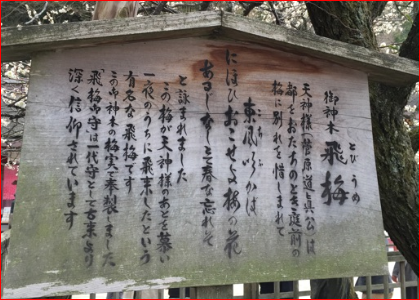 とびうめ
御神木 飛梅
天神様(菅原道真公)は
都をおたちのとき庭前の
梅に別れを惜しまれて
東風吹かば
にほひおこせよ梅の花
あるじなしとて春な忘れそ
と詠まれました
この梅が天神様のあとを慕い
一夜のうちに飛来したという
有名な飛梅です
この御神木の梅実で奉製しました
「飛梅御守」は一代守として古来より
深く信仰されています